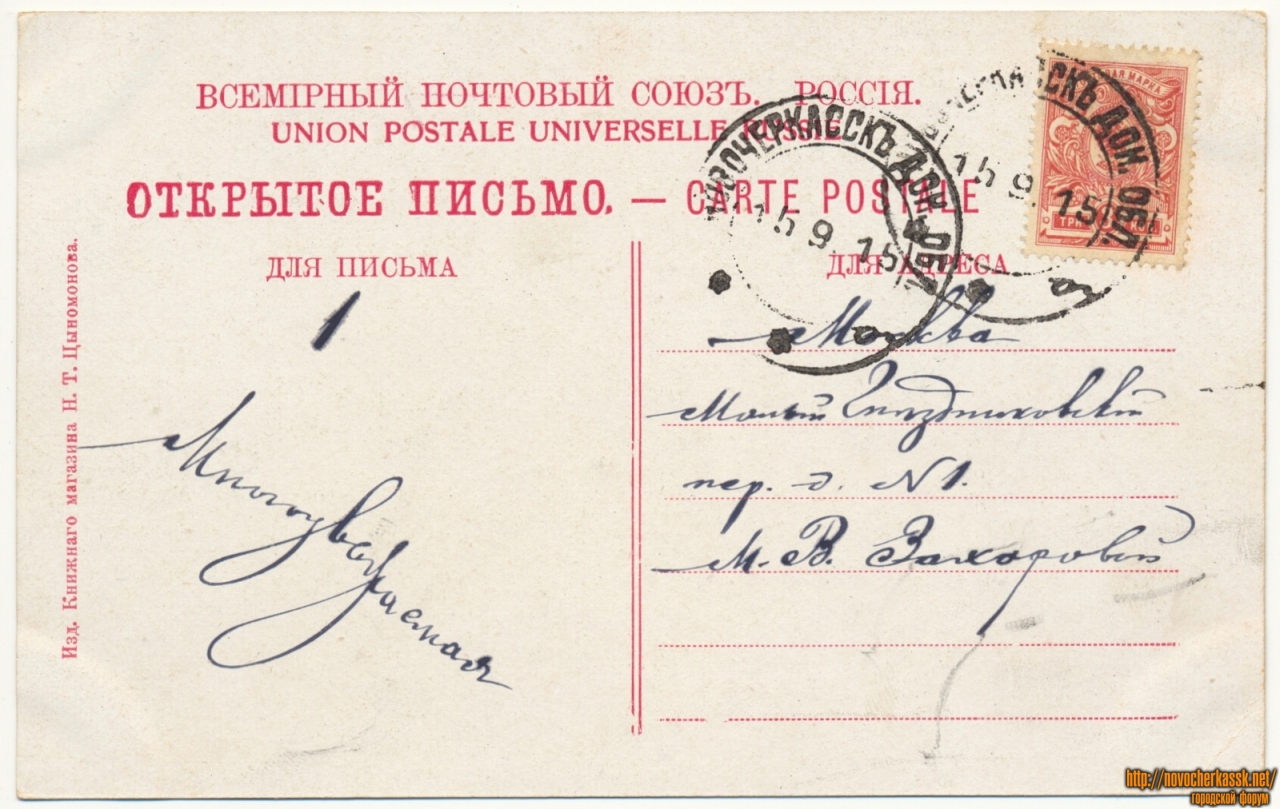 ВСЕМІРНЫЙ ПОЧТОВЫЙ СОЮЗЪ. РОССІЯ.
UNION POSTALE UNIVERSELLE RUSSIE
ОТКРЫТОЕ ПИСЬМО. — CARTE POSTALE
МАРКА
ТРИ КОП
НОВОЧЕРКАССКЪ ДОН. ОБЛ.
15 9 15
НОВОЧЕРКАССКЪ ДОН. ОБЛ.
15 9 15
ДЛЯ ПИСЬМА
1
Многоуважаемая
ДЛЯ АДРЕСА
Москва
Малый Гнездниковскій
пер. д. N1.
М. В. Захаровой
Изд. Книжнаго магазина Н. Т. Цыномонова.
http://novocherkassk.net/
городской форум